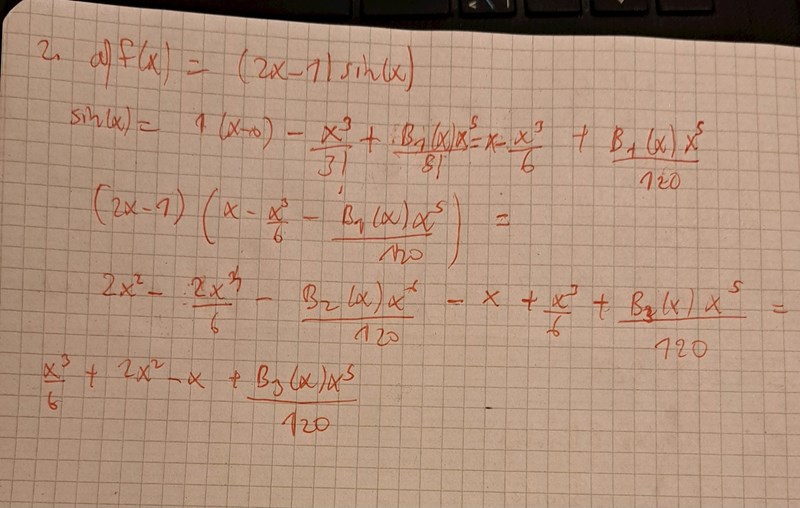 2. a) f(x) = (2x-1) sin(x)
sin(x) = 1(x-0) - x³/3! + B₁(x)x⁵/5! = x - x³/6 + B₁(x)x⁵/120
(2x-1) (x - x³/6 - B₁(x)x⁵/120) =
2x² - 2x⁴/6 - B₂(x)x⁶/120 - x + x³/6 + B₃(x)x⁵/120 =
x³/6 + 2x² - x + B₃(x)x⁵/120